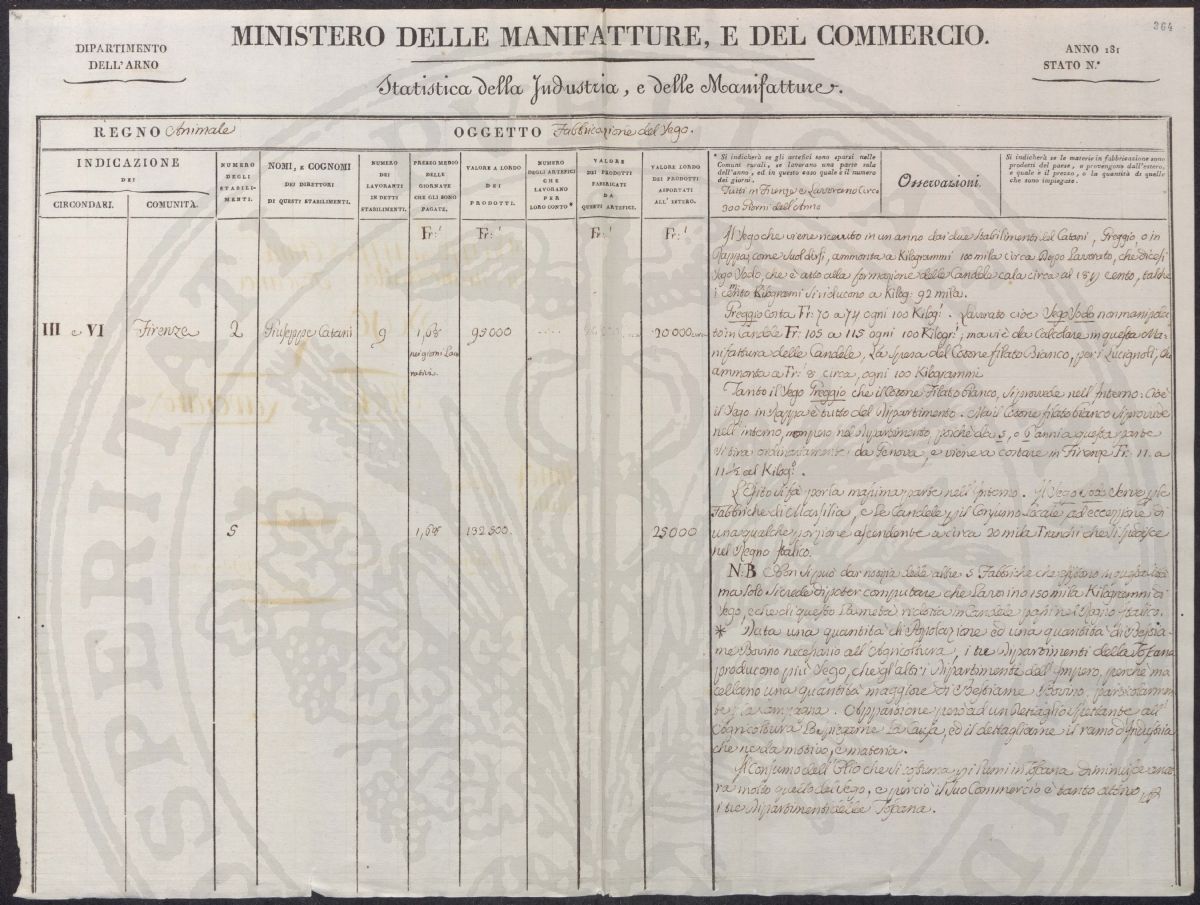 364
MINISTERO DELLE MANIFATTURE, E DEL COMMERCIO.
DIPARTIMENTO
DELL'ARNO
ANNO 181
STATO N.°
Statistica della Industria, e delle Manifatture.
REGNO Animale
OGGETTO Fabbricazione del Sego.
INDICAZIONE
DEI
CIRCONDARI.
COMUNITÀ.
NUMERO
DEGLI
STABILI-
MENTI.
NOMI, E COGNOMI
DEI DIRETTORI
DI QUESTI STABILIMENTI.
NUMERO
DEI
LAVORANTI
IN DETTI
STABILIMENTI.
PREZZO MEDIO
DELLE
GIORNATE
CHE GLI SONO
PAGATE.
VALORE A LORDO
DEI
PRODOTTI.
NUMERO
DEGLI ARTEFICI
CHE
LAVORANO
PER
LORO CONTO *
VALORE
DEI PRODOTTI
FABBRICATI
DA
QUESTI ARTEFICI.
VALORE LORDO
DEI PRODOTTI
ASPORTATI
ALL'ESTERO.
* Si indicherà se gli artefici sono sparsi nelle
Comuni rurali, se lavorano una parte sola
dell'anno, ed in questo caso quale è il numero
dei giorni.
Tutti in Firenze e Lavorano circa
300 Giorni dell'Anno
Osservazioni.
Si indicherà se le materie in fabbricazione sono
prodotti del paese, o provengono dall'estero,
e quale è il prezzo, o la quantità di quelle
che sono impiegate.
Fr:
Fr:
Fr:
Fr:
III e VI
Firenze
2
Giuseppe Catani
9
1,68
nei giorni Lavo
rativi.
95000
20000
5
1,68
132500.
25000
Il Sego che viene ricevuto in un anno dai due stabilimenti del Catani, Greggio, o in
Rappa, come suol dirsi, ammonta a Kilogrammi 100 mila circa Dopo Lavorato, che dicesi
Sego Sodo, che è atto alla formazione delle Candele cala circa al cento, talchè
i cento Kilogrami si riducono a Kilog: 92 mila.
Greggio costa Fr: 70 a 74 ogni 100 Kilog: Lavorato cioè Sego Sodo non manipola
to in Candele Fr: 105 a 115 ogni 100 Kilogr: ; ma vi è da calcolare in questa Ma
nifattura delle Candele, La spesa del Cotone filato Bianco, per i Lucignoli, che
ammonta a Fr: 8 circa, ogni 100 Kilogrammi
Tanto il Sego Greggio che il Cotone Filato bianco, si provede nell'Interno: Cioè
il Sego in Rappa è tutto del Dipartimento. Ma il Cotone filato bianco si provede
nell'interno, non però nel Dipartimento, poichè da 5, o 6 anni a questa parte
si tira ordinariamente da Genova, e viene a costare in Firenze Fr: 11. a
11½ al Kilog:
L'Esito si fa per la massima parte nell'Interno. Il Sego Sodo Serve per le
Fabbriche di Marsilia, e le Candele per il Consumo Locale ad eccezione di
una qualche porzione ascendente a circa 20 mila Franchi che si spedisce
nel Regno Italico.
NB Non si può dar notizia delle altre 5 Fabbriche che esistono in questa Città
ma solo si crede di poter computare che Lavorino 150 mila Kilogrammi di
Sego, e che di questo La metà ridotta in Candele passi nel Regno Italico.
* Data una quantità di Popolazione ed una quantità di Bestia-
me Bovino necessario all'Agricoltura, i tre Dipartimenti della Toscana
producono più Sego, che gl'altri Dipartimenti dell'Impero, perchè ma
cellano una quantità maggiore di Bestiame Bovino, particolarmen
te per la Campagna. Appartiene però ad un Dettaglio spettante all'
Agricoltura La Causa, ed il dettagliarne il ramo d'Industria
che ne da motivo, e materia.
Il Consumo dell'Olio che si costuma per i Lumi in Toscana diminuisce anco
ra molto quello del Sego, e perciò il suo Commercio è tanto attivo per
i tre Dipartimenti della Toscana.